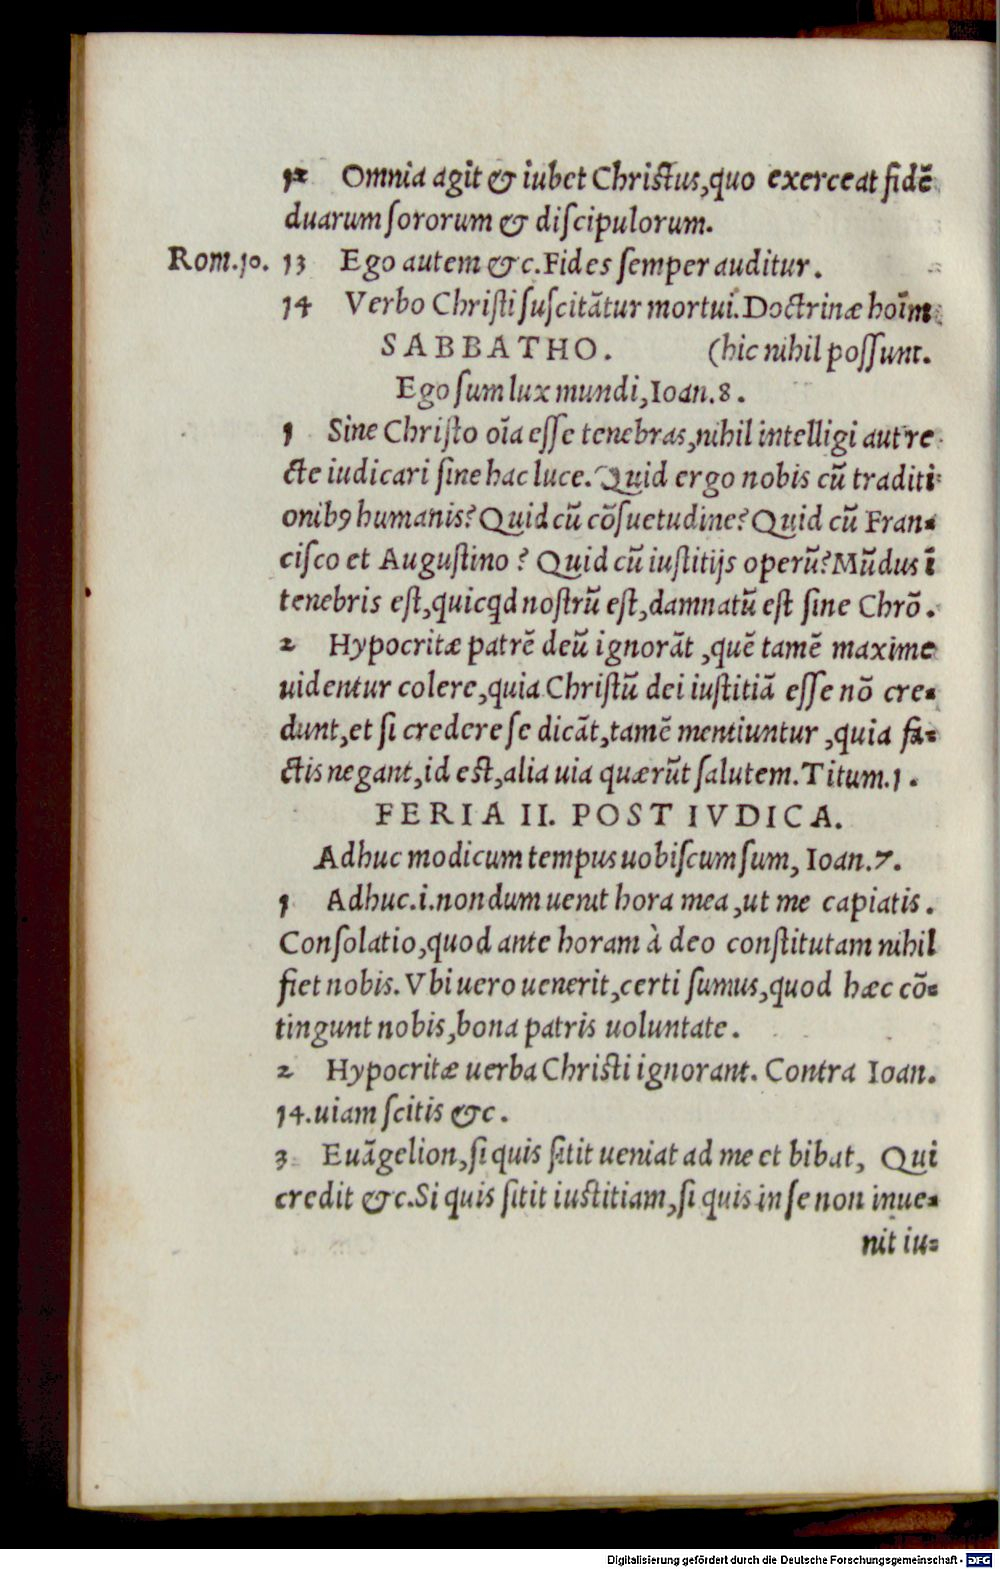 12 Omnia agit & iubet Christus,quo exerceat fidē
duarum ſororum & diſcipulorum.
Rom.10. 13 Ego autem &c.Fides ſemper auditur.
14 Verbo Chriſti ſuſcitātur mortui.Doctrinæ hoīm
SABBATHO. (hic nihil poſſunt.
Ego ſum lux mundi,Ioan.8.
1 Sine Chriſto oīa eſſe tenebras,nihil intelligi aut re
cte iudicari ſine hac luce.Quid ergo nobis cū traditi
onibꝰ humanis?Quid cū cōſuetudine?Quid cū Fran⸗
ciſco et Auguſtino? Quid cū iuſtitijs operū?Mūdus ī
tenebris eſt,quicꝗd noſtrū eſt,damnatū eſt ſine Chrō.
2 Hypocritæ patrē deū ignorāt,quē tamē maxime
uidentur colere,quia Chriſtū dei iuſtitiā eſſe nō cre⸗
dunt,et ſi credere ſe dicāt,tamē mentiuntur,quia fa⸗
ctis negant,id eſt,alia uia quærūt ſalutem.Titum.1.
FERIA II. POST IVDICA.
Adhuc modicum tempus uobiſcum ſum, Ioan.7.
1 Adhuc.i.nondum uenit hora mea,ut me capiatis.
Conſolatio,quod ante horam à deo conſtitutam nihil
fiet nobis.Vbi uero uenerit,certi ſumus,quod hæc cō⸗
tingunt nobis,bona patris uoluntate.
2 Hypocritæ uerba Chriſti ignorant. Contra Ioan.
14.uiam ſcitis &c.
3 Euāgelion,ſi quis ſitit ueniat ad me et bibat, Qui
credit &c.Si quis ſitit iuſtitiam,ſi quis in ſe non inue⸗
nit iu⸗
Digitalisierung gefördert durch die Deutsche Forschungsgemeinschaft - DFG